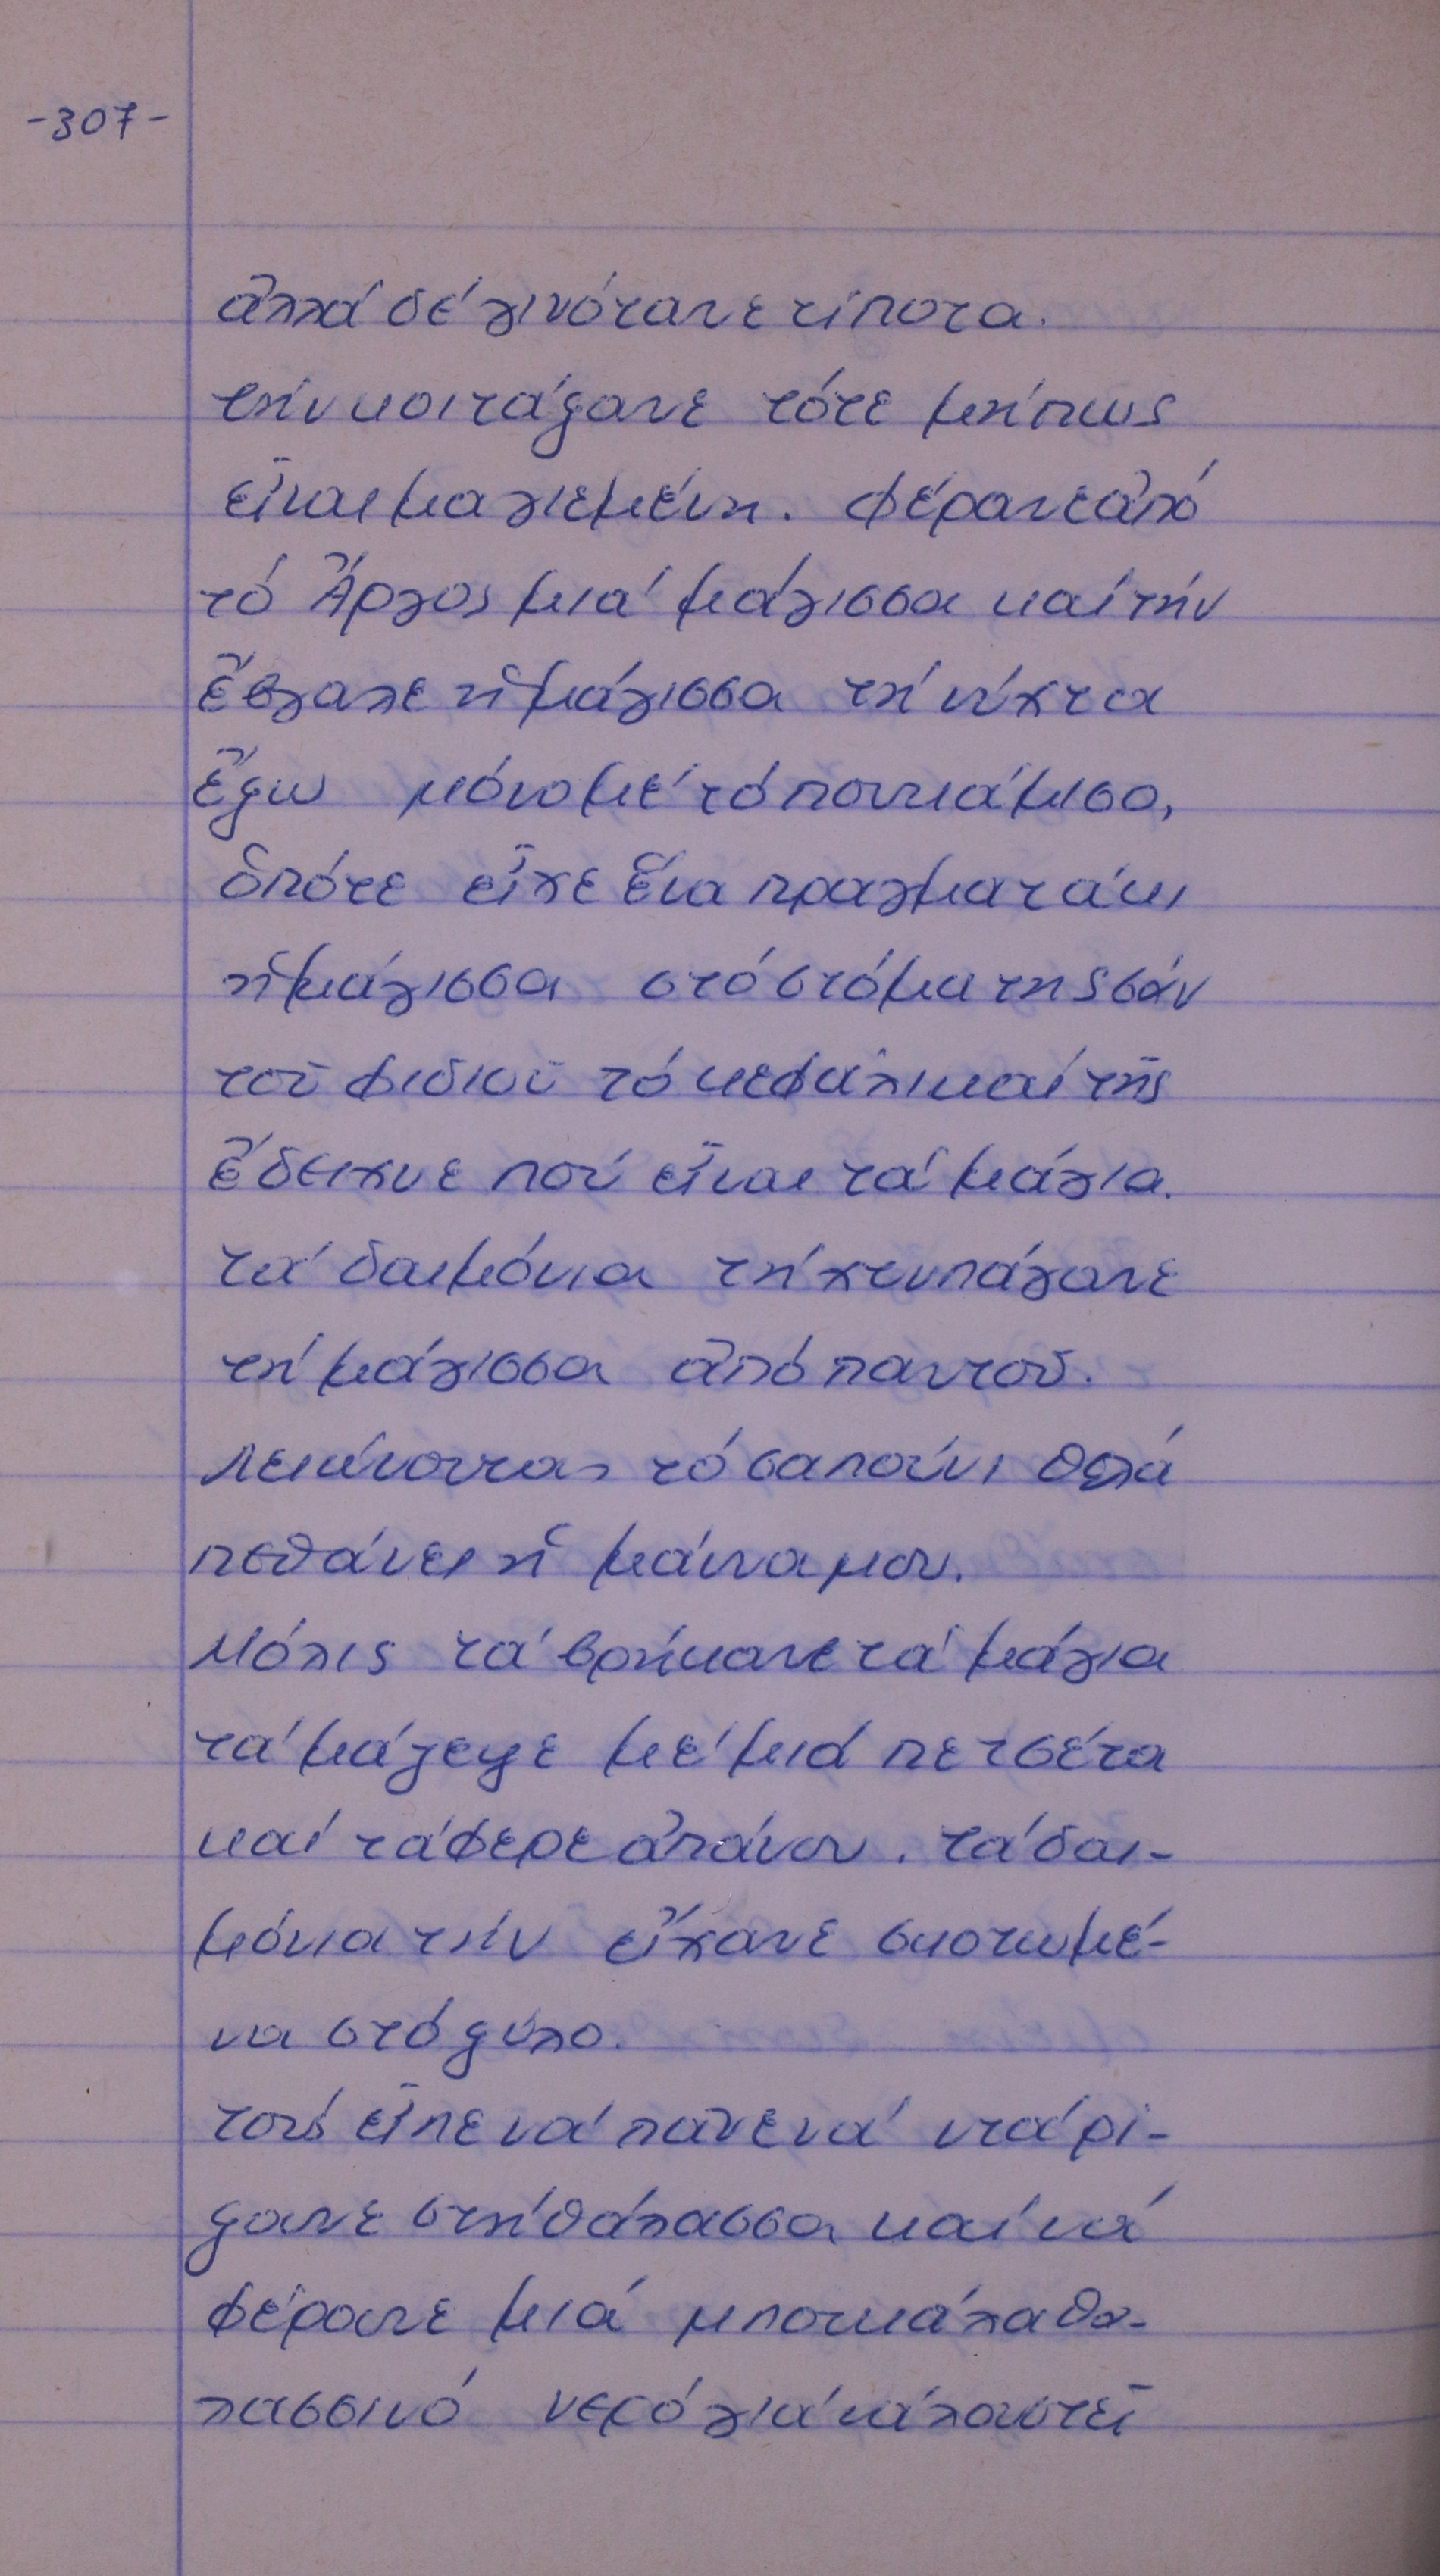 -307-
ἀλλά δέ γινότανε τίποτα.
τήν κοιτάξανε τότε μήπως
εἶναι μαγιεμένη. Φέρανε ἀπό
τό Ἄργος μιά μάγισσα καί τήν
ἔβγαλε ἡ μάγισσα τή νύχτα
ἔξω μόνο μέ τό πουκάμισο,
ὁπότε εἶχε ἕνα πραγματάκι
ἡ μάγισσα στό στόμα της σάν
τοῦ φιδιοῦ τό κεφάλι καί τῆς
ἔδειχνε πού εἶναι τά μάγια.
τά δαιμόνια τή χτυπάγανε
τή μάγισσα ἀπό παντοῦ.
Λειώνοντας τό σαπούνι θελά
πεθάνει ἡ μάνα μου.
Μόλις τά βρήκανε τά μάγια
τά μάζεψε μέ μιά πετσέτα
καί τάφερε ἀπάνου. τά δαι-
μόνια τήν εἴχανε σκοτωμέ-
να στό ξύλο.
τούς εἶπε νά πᾶνε νά ντά ρί-
ξουνε στή θάλασσα καί νά
φέρουνε μιά μπουκάλα θα-
λασσινό νερό γιά νά λουστεῖ